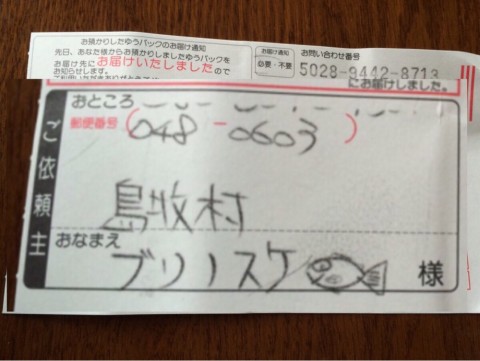 お預かりしたゆうパックのお届け通知
先日、あなた様からお預かりしましたゆうパックを
お届け先にお届けいたしましたので
お知らせします。
お届け通知
必要・不要
お問い合わせ番号
5028-9442-8713
にお届けしました。
ご依頼主
おところ
郵便番号(048-0603)
島牧村
おなまえ
ブリノスケ 様